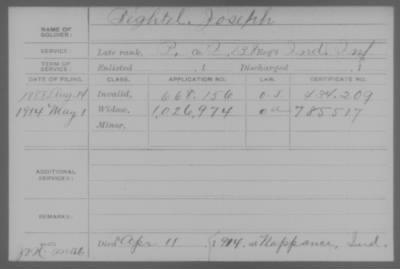 NAME OF SOLDIER: Fightel, Joseph
SERVICE: Late rank, Ind. Inf
TERM OF SERVICE: Enlisted , 1 Discharged , 1
DATE OF FILING. CLASS. APPLICATION NO. LAW. CERTIFICATE NO.
Aug. 14 Invalid, 668.156 434.209
1914 May 1 Widow, 1,026,974 785517
Minor,
ADDITIONAL SERVICES:
REMARKS:
Died Apr 11 1914, at Nappanee, Ind.